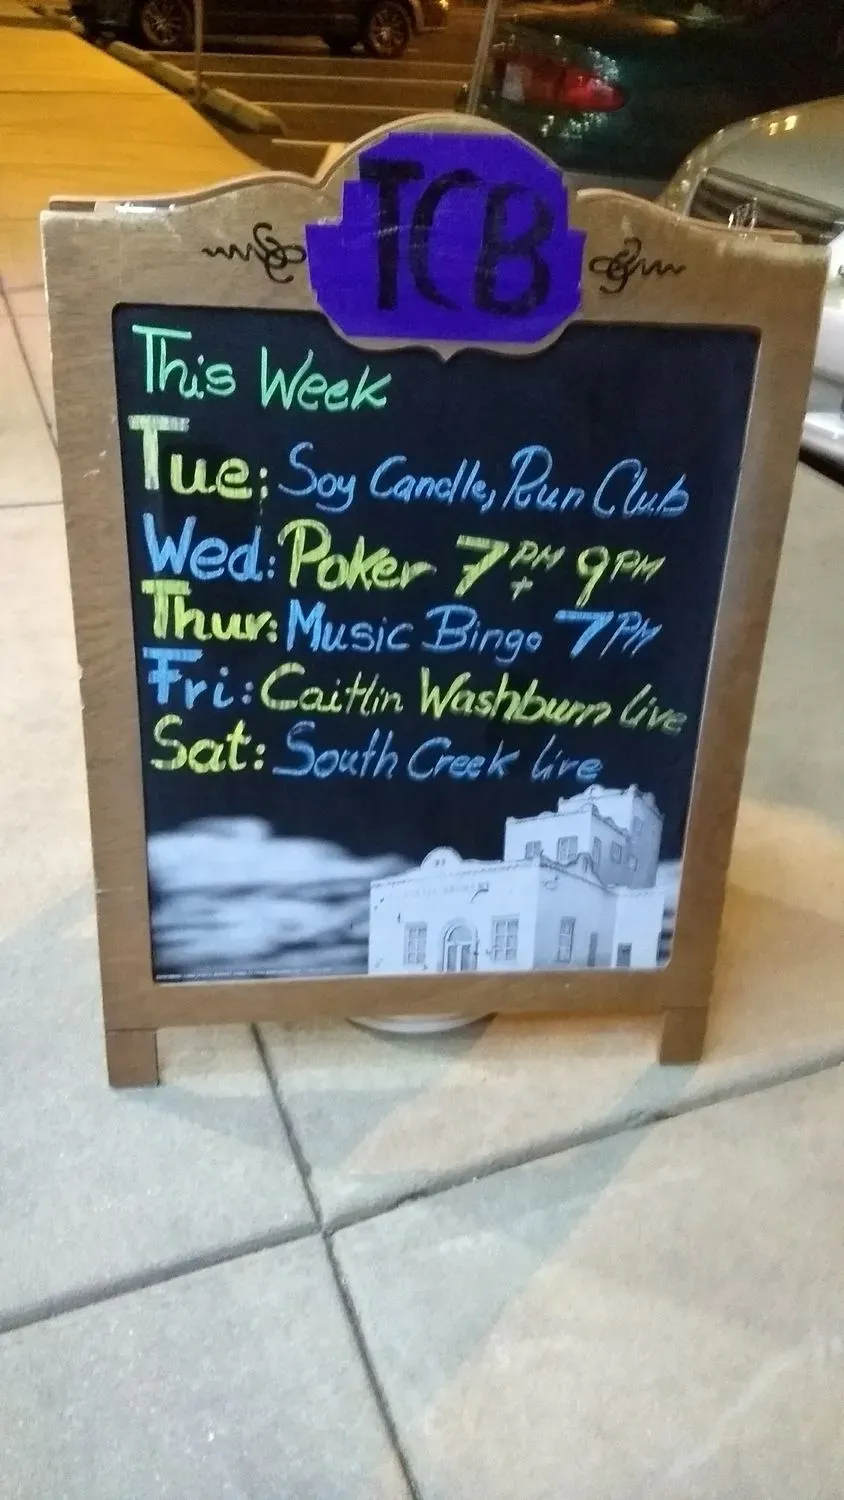 TCB
This Week
Tue: Soy Candle, Run Club
Wed: Poker 7PM + 9PM
Thur: Music Bingo 7PM
Fri: Caitlin Washburn live
Sat: South Creek live